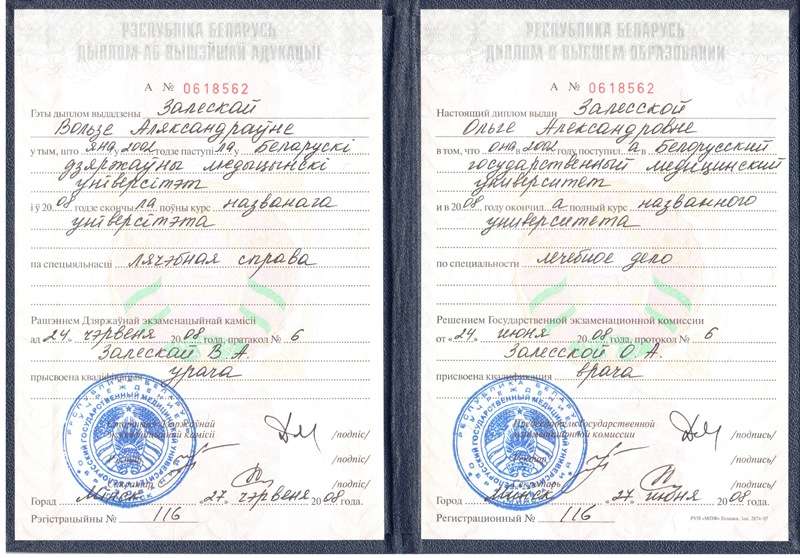 РЭСПУБЛІКА БЕЛАРУСЬ
ДЫПЛОМ АБ ВЫШЭЙШАЙ АДУКАЦЫІ
А № 0618562
Гэты дыплом выдадзены Залескай
Вользе Аляксандраўне
у тым, што яна 2002 годзе паступіла ў Беларускі
дзяржаўны медыцынскі
ўніверсітэт
і ў 2008 годзе скончыла поўны курс названага
ўніверсітэта
па спецыяльнасці лячэбная справа
Рашэннем Дзяржаўнай экзаменацыйнай камісіі
ад 24 чэрвеня 2008 года, пратакол № 6
Залескай В.А.
прысвоена кваліфікацыя урача
Старшыня Дзяржаўнай
экзаменацыйнай камісіі /подпіс/
Рэктар /подпіс/
Сакратар /подпіс/
Горад Мінск 27 чэрвеня 2008 года.
Рэгістрацыйны № 116
РЕСПУБЛИКА БЕЛАРУСЬ
ДИПЛОМ О ВЫСШЕМ ОБРАЗОВАНИИ
А № 0618562
Настоящий диплом выдан Залесской
Ольге Александровне
в том, что она 2002 году поступила в Белорусский
государственный медицинский
университет
и в 2008 году окончила полный курс названного
университета
по специальности лечебное дело
Решением Государственной экзаменационной комиссии
от 24 июня 2008 года, протокол № 6
Залесской О.А.
присвоена квалификация врача
Председатель Государственной
экзаменационной комиссии /подпись/
Ректор /подпись/
Секретарь /подпись/
Город Минск «27» июня 2008 г.
Регистрационный № 116